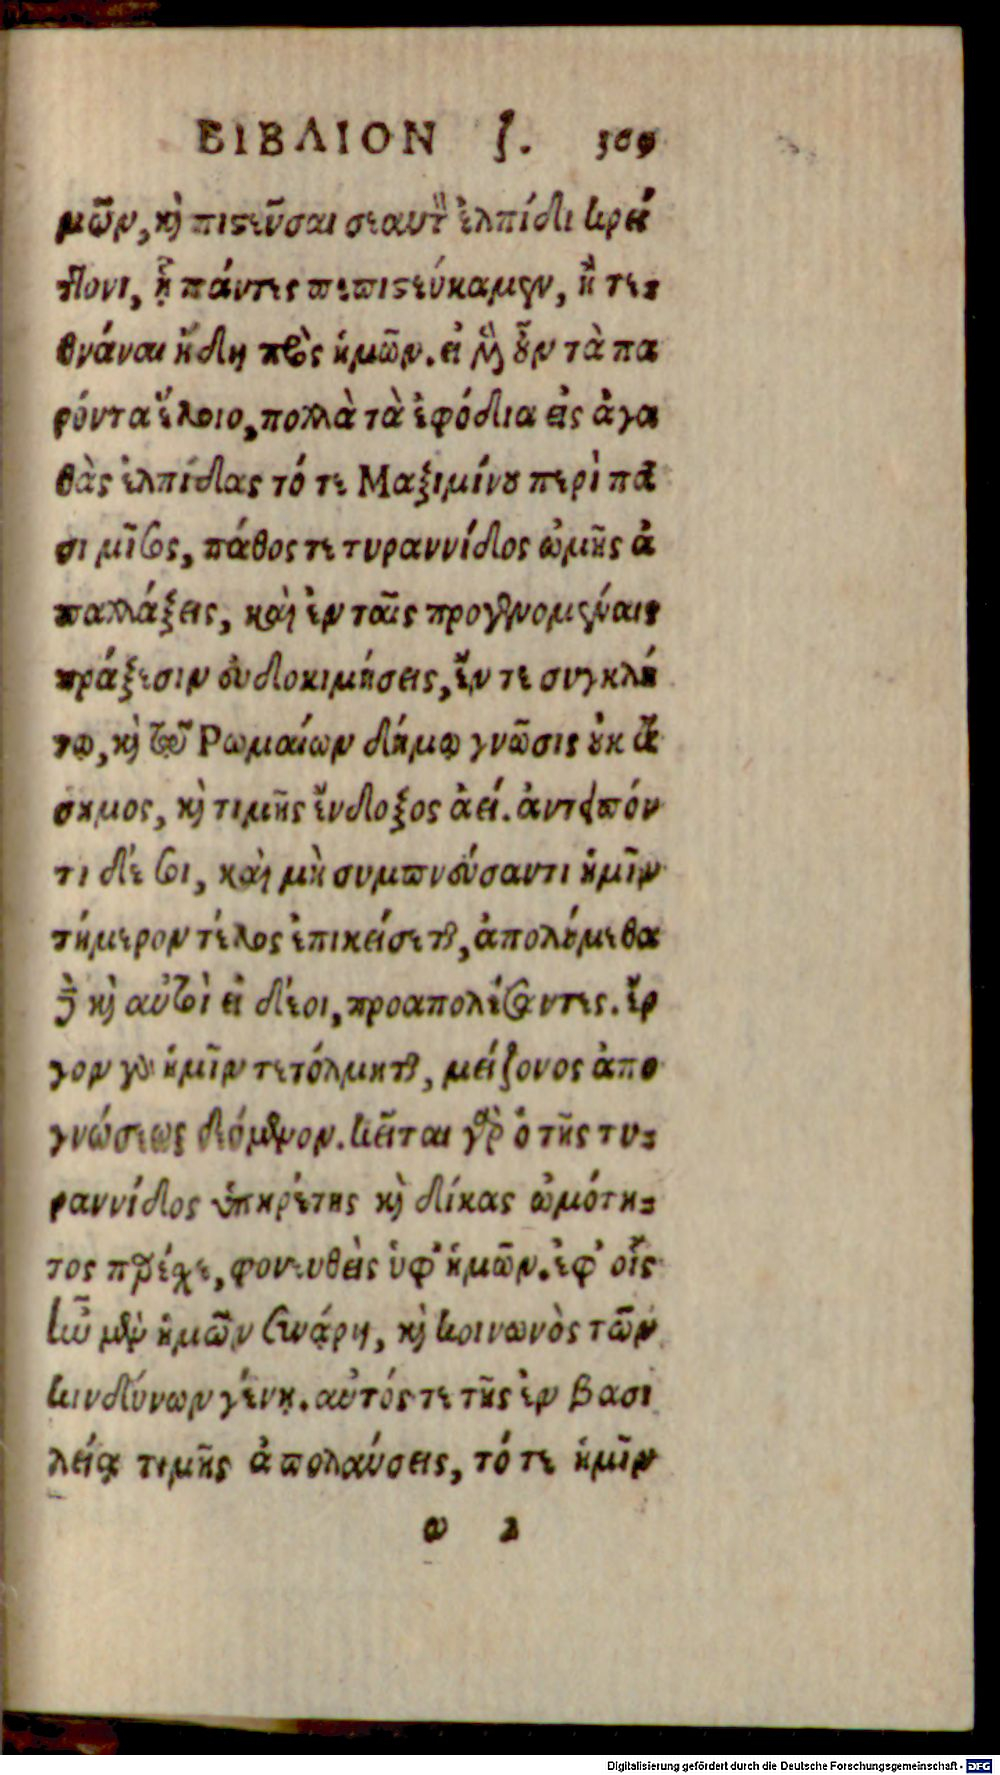 ΒΙΒΛΙΟΝ ζ. 309
μῶν, κὴ πιστεῦσαι σεαυτὸν ἐλπίδι κρεί
ττονι, ᾗ πάντες πεπιστεύκαμεν, ἢ τε-
θνάναι ἤδη πρὸς ἡμῶν. εἰ μὲν οὖν τὰ πα
ρόντα ἕλοιο, πολλὰ τὰ ἐφόδια εἰς ἀγα
θὰς ἐλπίδας τό τε Μαξιμίνου περὶ πᾶ
σι μῖσος, πάθος τε τυραννίδος ὠμῆς ἀ
παλλάξεις, καὶ ἐν ταῖς προγενομέναις
πράξεσιν εὐδοκιμήσεις, ἔν τε συγκλή
τῳ, κὴ τῷ Ρωμαίων δήμῳ γνῶσις οὐκ ἄ
σημος, κὴ τιμῆς ἔνδοξος ἀεί. ἀντειπόν
τι δέ σοι, καὶ μὴ συμπνεύσαντι ἡμῖν
τήμερον τέλος ἐπικείσεται, ἀπολούμεθα
δὲ κὴ αὐτοὶ εἰ δέοι, προαπολέσαντες. ἔρ
γον γὰρ ἡμῖν τετόλμηται, μείζονος ἀπο
γνώσεως δεόμενον. κεῖται γὰρ ὁ τῆς τυ-
ραννίδος ὑπηρέτης κὴ δίκας ὠμότη-
τος παρέχει, φονευθεὶς ὑφ' ἡμῶν. ἐφ' οἷς
ἢν μὲν ἡμῶν συνάρῃ, κὴ κοινωνὸς τῶν
κινδύνων γένῃ. αὐτός τε τῆς ἐν βασι
λείᾳ τιμῆς ἀπολαύσεις, τό τε ἡμῖν
ω 2
Digitalisierung gefördert durch die Deutsche Forschungsgemeinschaft - DFG